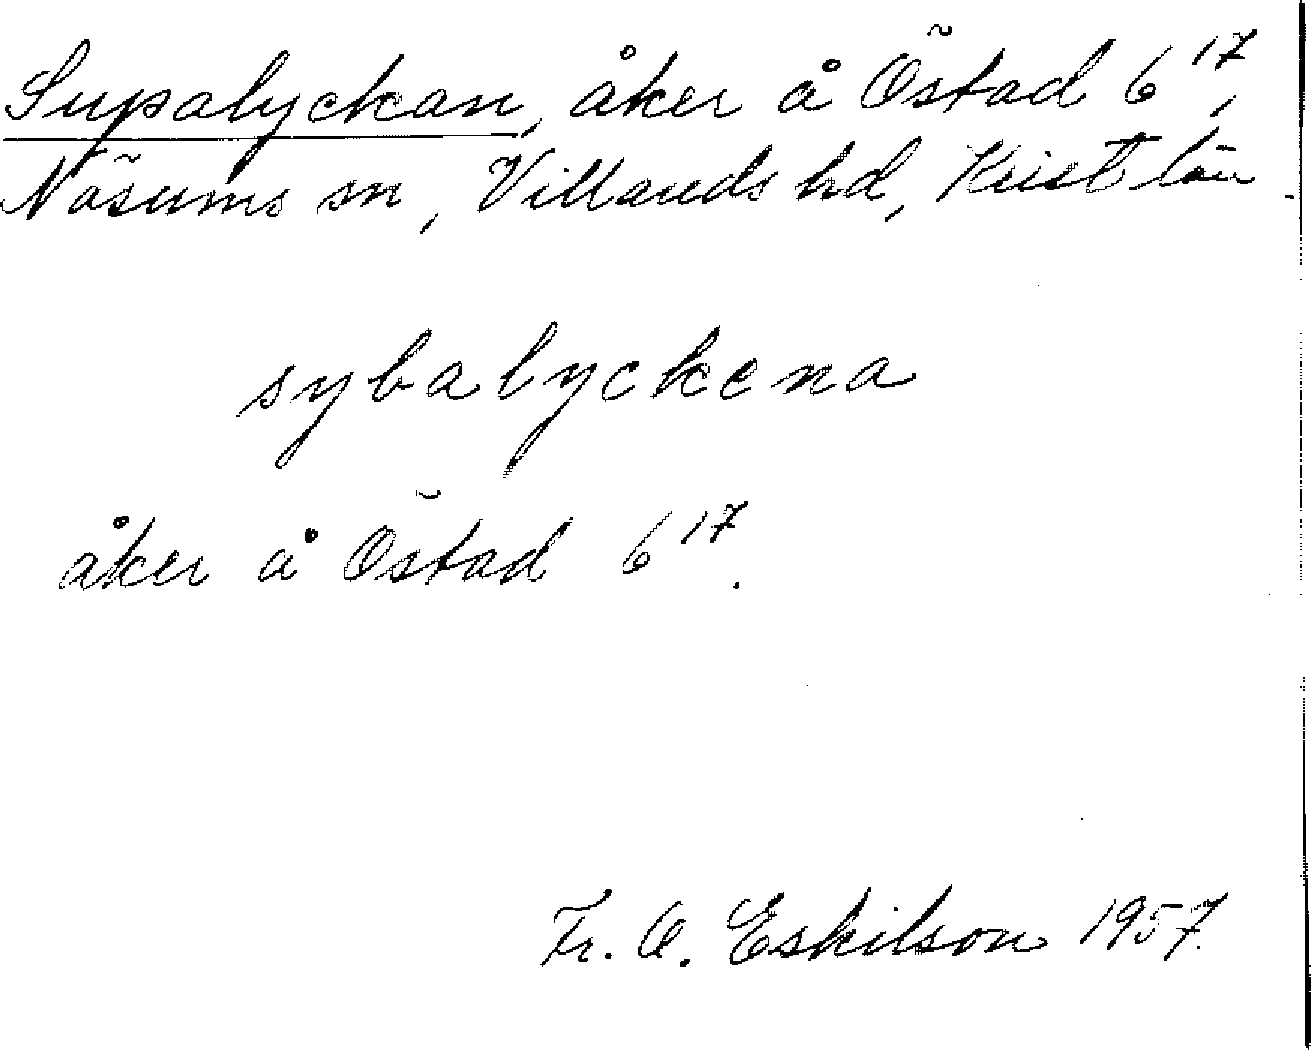 Supalyckan, åker å Östad 6¹⁷,
Näsums sn, Villands hd, Krist län.
sybalyckena
åker å Östad 6¹⁷.
Fr. A. Eskilson 1957.